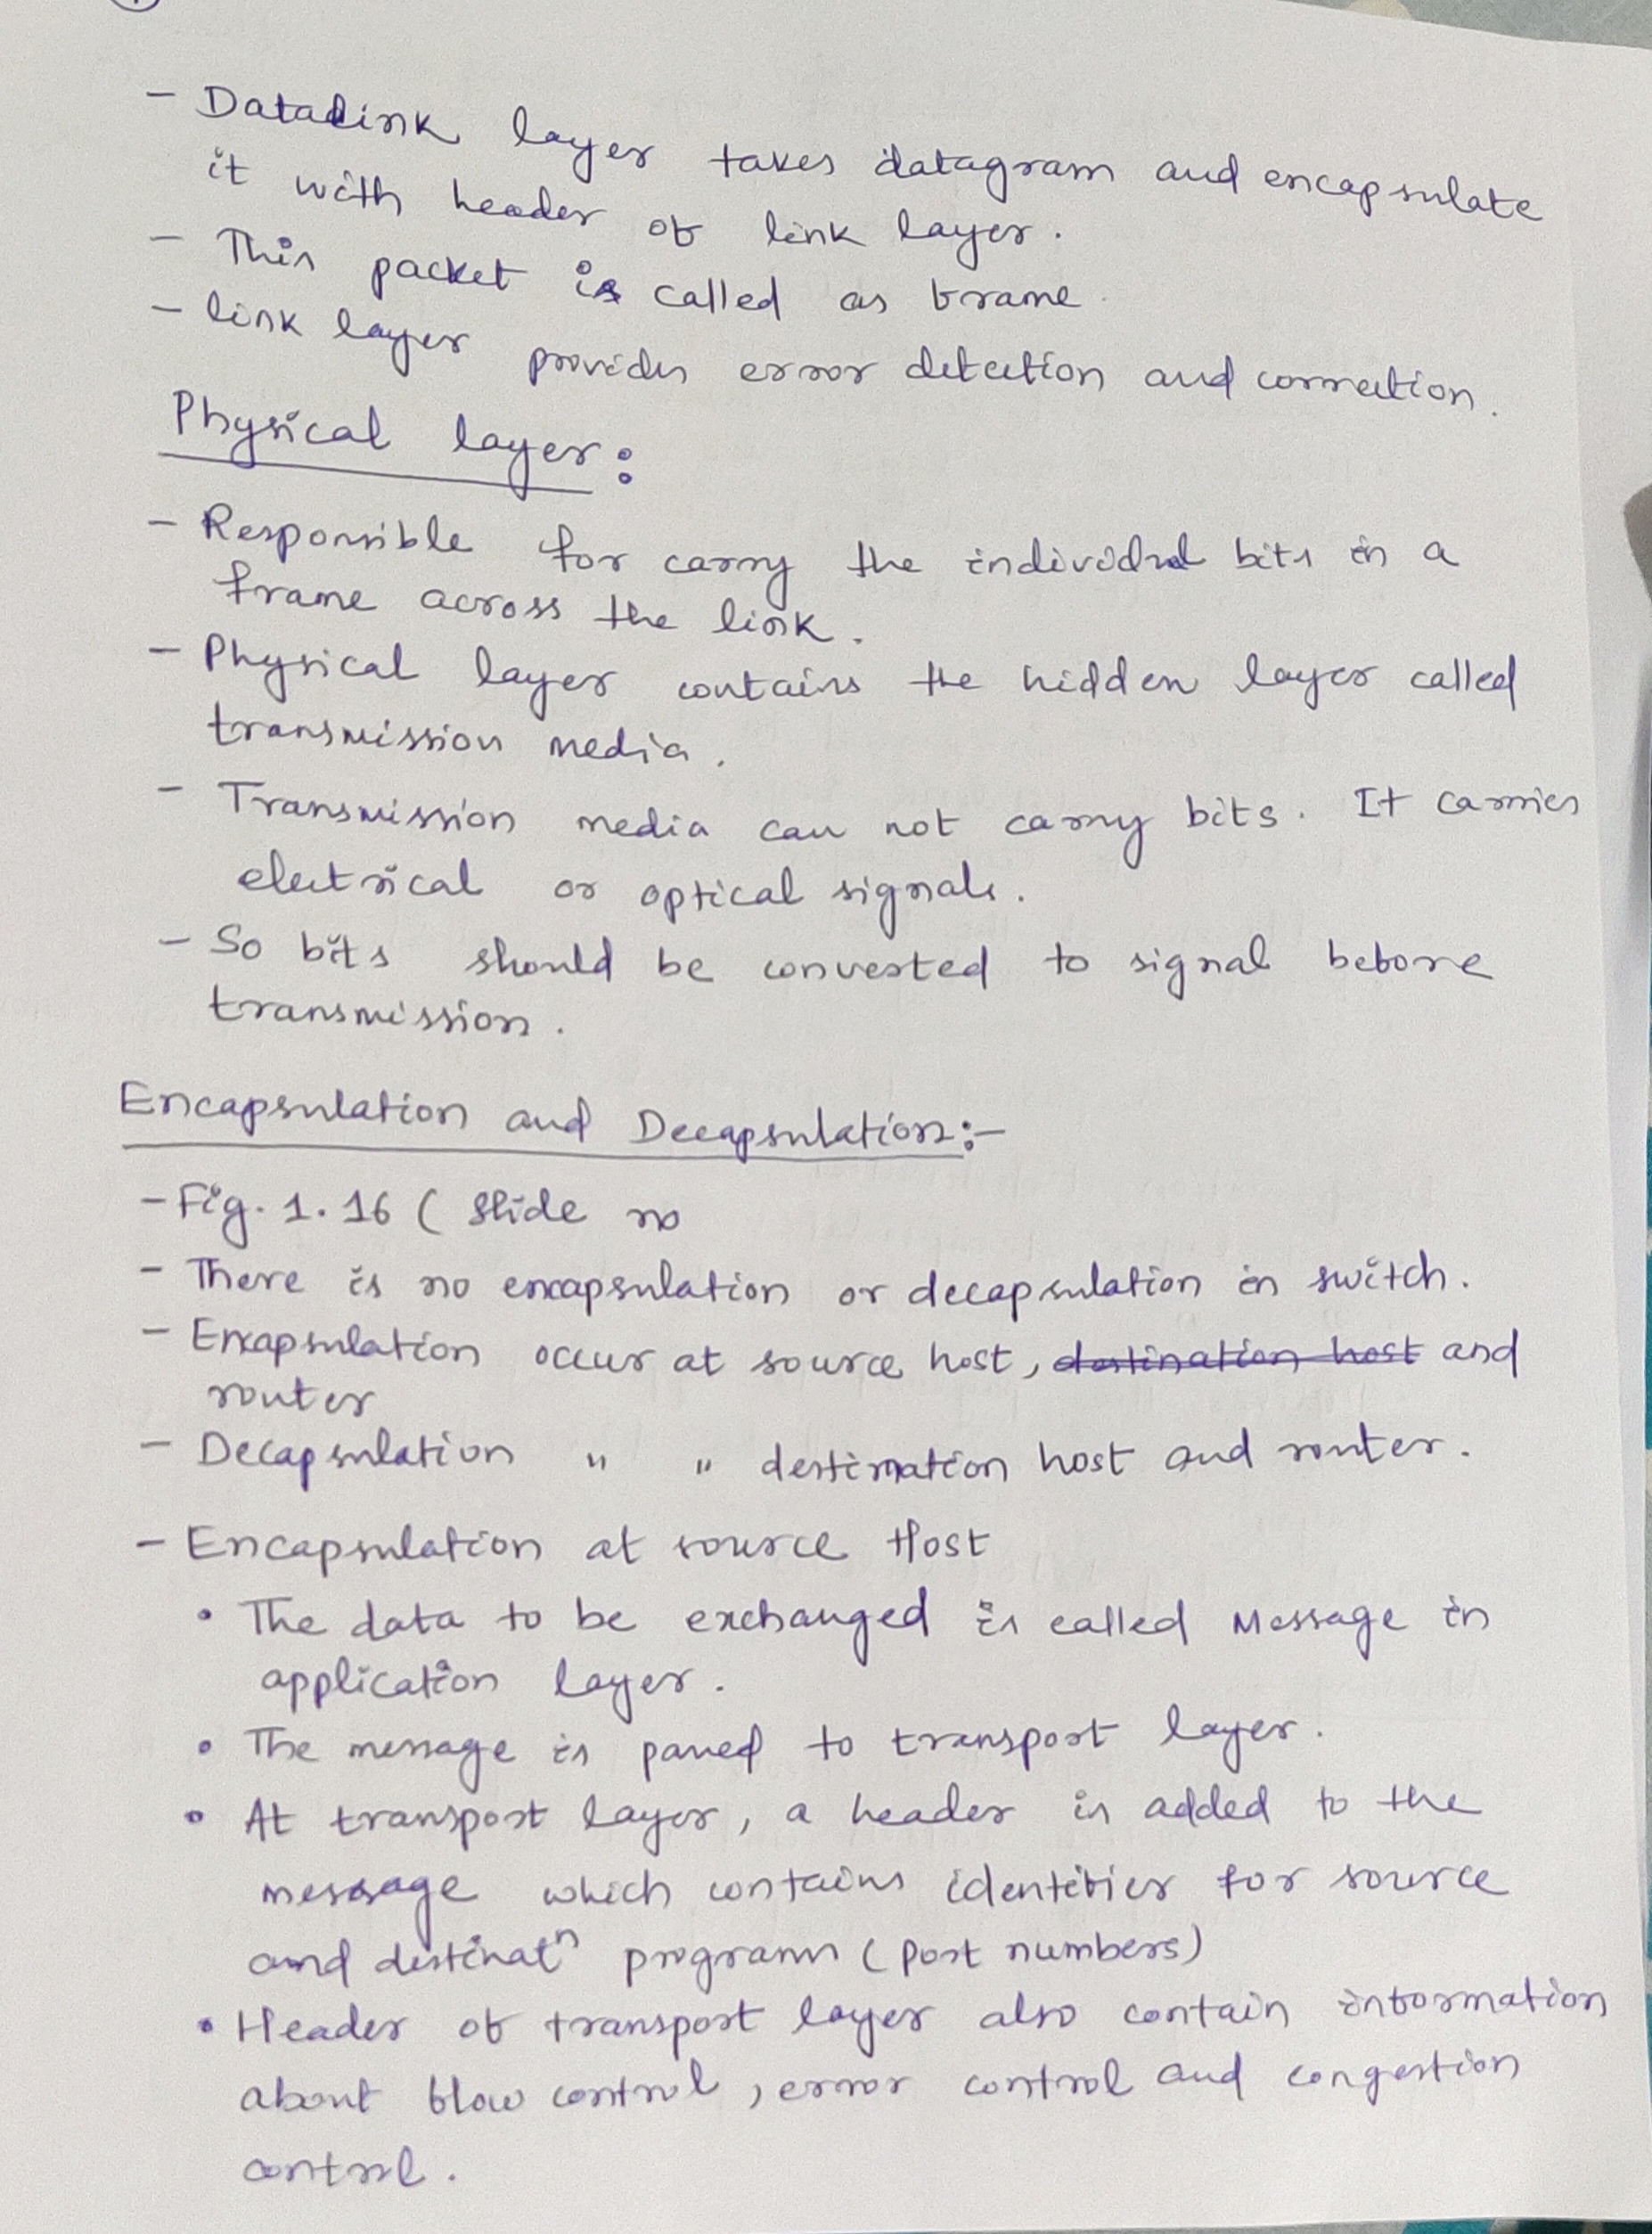 - Datalink layer takes datagram and encapsulate
it with header of link layer.
- This packet is called as frame.
- link layer provides error detection and correction.
Physical layer:
- Responsible for carry the individual bits in a
frame across the link.
- Physical layer contains the hidden layer called
transmission media.
- Transmission media can not carry bits. It carries
electrical or optical signals.
- So bits should be converted to signal before
transmission.
Encapsulation and Decapsulation:-
- Fig. 1.16 ( Slide no
- There is no encapsulation or decapsulation in switch.
- Encapsulation occur at source host, destination host and
router
- Decapsulation " " destination host and router.
- Encapsulation at source Host
• The data to be exchanged is called Message in
application layer.
• The message is passed to transport layer.
• At transport layer, a header is added to the
message which contains identities for source
and destinatⁿ program (port numbers)
• Header of transport layer also contain information
about flow control, error control and congestion
control.